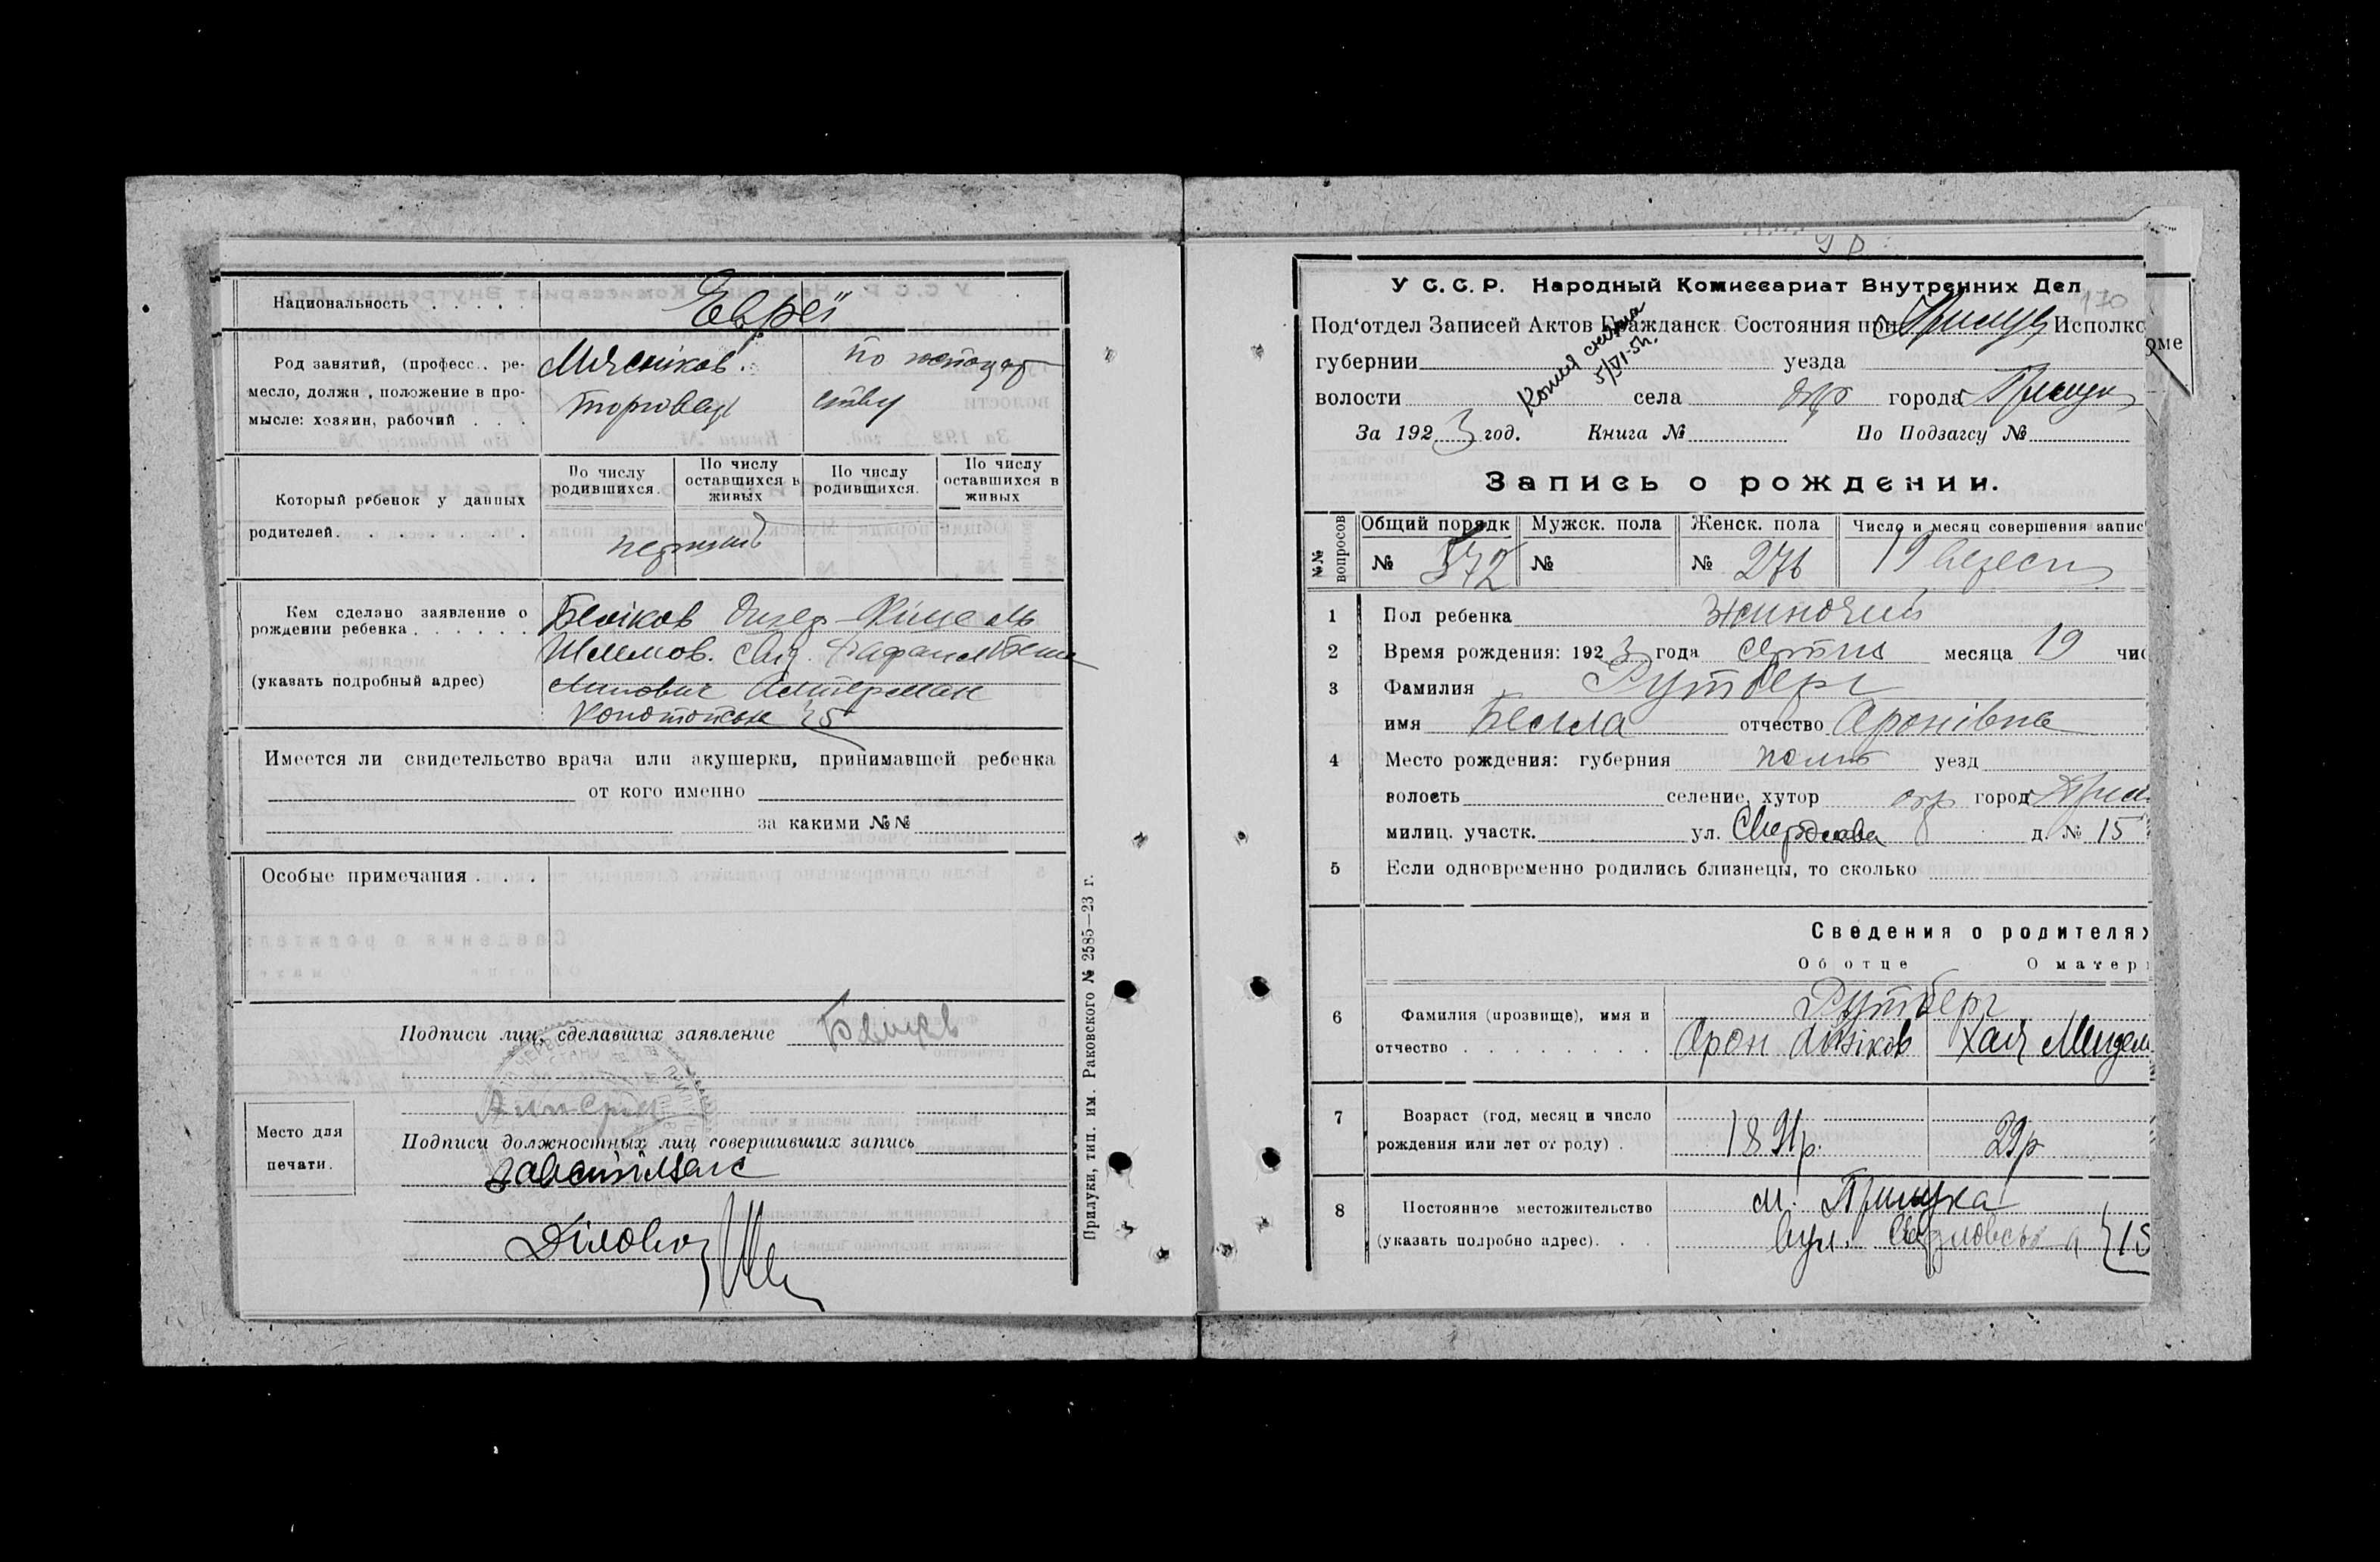 Национальность . . . . .
Евреї
Род занятий, (професс.. ре-
месло, должн , положение в про-
мысле: хозяин, рабочий . . .
торговец
по господар
ству
Который ребенок у данных
родителей. . . . . . . .
По числу родившихся.
По числу оставшихся в живых
По числу родившихся.
По числу оставшихся в живых
Кем сделано заявление о
рождении ребенка . . . . . .
(указать подробный адрес)
Шлемов.
25
Имеется ли свидетельство врача или акушерки, принимавшей ребенка
от кого именно
за какими №№
Особые примечания . . .
Подписи лиц, сделавших заявление
Место для
печати.
Подписи должностных лиц совершивших запись
Діловод
Прилуки, тип. им. Раковского № 2585—23 г.
170
У С. С. Р. Народный Комиссариат Внутренних Дел
Под‘отдел Записей Актов Гражданск. Состояния при Прилуц Исполко
губернии уезда
волости села окр города Прилуки
Копия снята
5/VI-51.
За 192 3 год. Книга № По Подзагсу №
Запись о рождении.
№№ вопросов
Общий порядк
Мужск. пола
Женск. пола
Число и месяц совершения запис
№ 572
№
№ 276
19 вересн
1 Пол ребенка жиночий
2 Время рождения: 192 3 года серпня месяца 19 чис
3 Фамилия Рутберг
имя Белла отчество Аронівна
4 Место рождения: губерния Полт уезд
волость селение, хутор окр город Прил
милиц. участк. ул. Свердлова д. № 15
5 Если одновременно родились близнецы, то сколько
Сведения о родителях
Об отце О матер
6 Фамилия (прозвище), имя и
отчество . . . . . . . .
Рутберг
Арон Хая Мендел
7 Возраст (год, месяц и число
рождения или лет от роду) .
1891р. 29р
8 Постоянное местожительство
(указать подробно адрес). . .
м. Прилука
вул. 15
оме